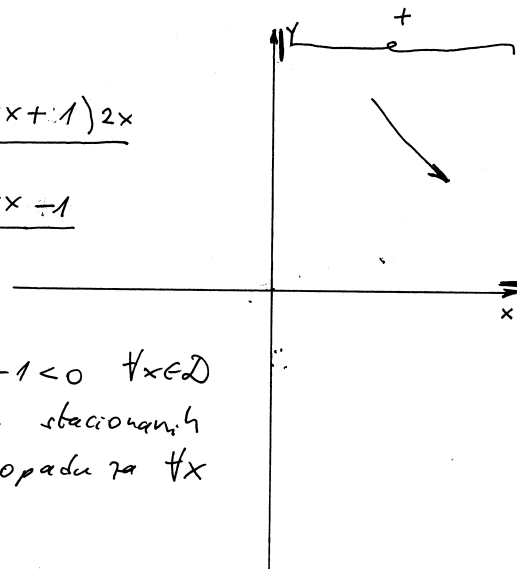 +
y
x + 1) 2x
x - 1
x
-1 < 0 ∀x∈D
stacionarnih
opadu za ∀x